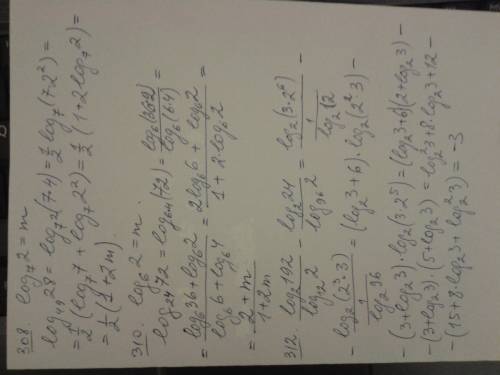 308. log₇2 = m
log₄₉28 = log₇²(7·4) = ½log₇(7·2²) =
= ½(log₇7 + log₇2²) = ½(1+2log₇2) =
= ½(1+2m)
310. log₆2 = m.
log₂₄72 = log₆.₄(72) = log₆(36·2)/log₆(6·4) =
= (log₆36 + log₆2)/(log₆6 + log₆4) = (2log₆6 + log₆2)/(1+2·log₆2) =
= (2+m)/(1+2m)
312. log₂192/log₁₂2 − log₂24/log₉₆2 = log₂(3·2⁶)/(1/log₂12) −
− log₂(2³·3)/(1/log₂96) = (log₂3+6)·log₂(2²·3) −
− (3+log₂3)·log₂(3·2⁵) = (log₂3+6)(2+log₂3) −
− (3+log₂3)·(5+log₂3) = log₂²3+8·log₂3+12 −
− (15+8·log₂3+log₂²3) = −3